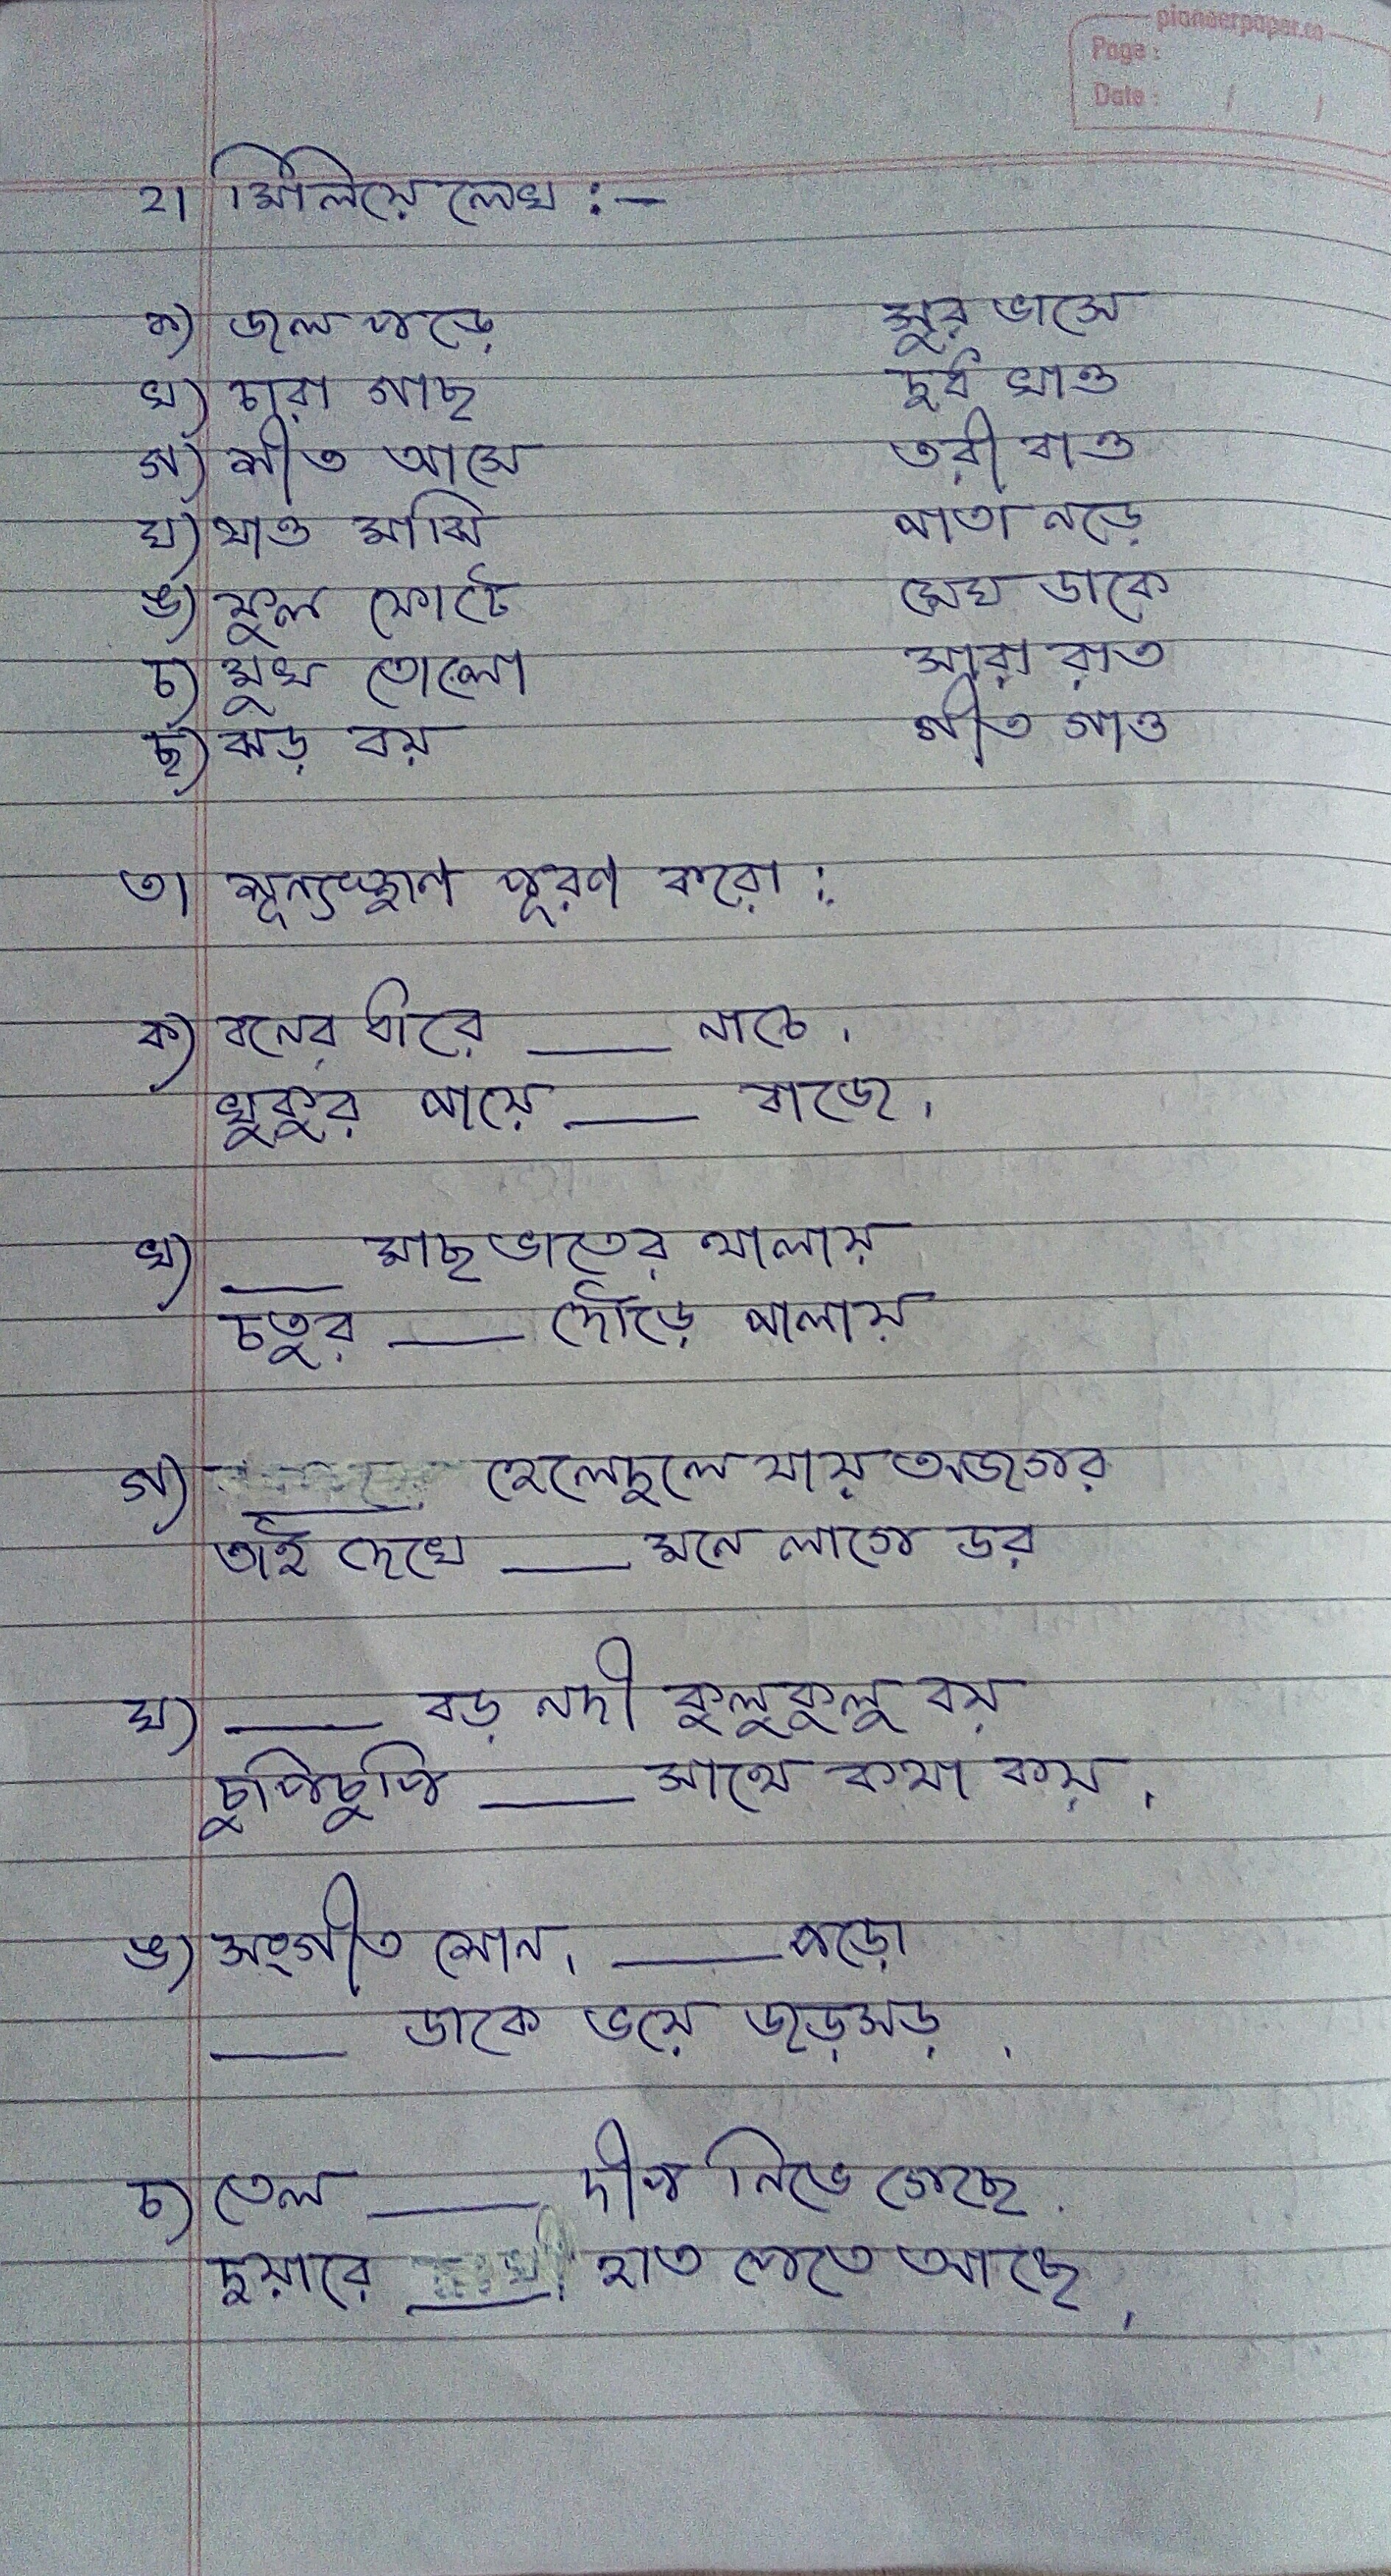 pioneerpaper.co
Page :
Date : / /
২। মিলিয়ে লেখ :-
ক) জল পড়ে সুর ভাসে
খ) চারা গাছ দুধ খাও
গ) শীত আসে তরী বাও
ঘ) যাও মাঝি পাতা নড়ে
ঙ) ফুল ফোটে মেঘ ডাকে
চ) মুখ তোলো সারা রাত
ছ) ঝড় বয় গীত গাও
৩। শূন্যস্থান পূরণ করো :
ক) বনের ধারে ____ নাচে।
খুকুর পায়ে ____ বাজে।
খ) ____ মাছ ভাতের থালায়
চতুর ____ দৌড়ে পালায়
গ) ____ হেলেদুলে যায় অজগর
তাই দেখে ____ মনে লাগে ডর
ঘ) ____ বড় নদী কুলুকুলু বয়
চুপিচুপি ____ সাথে কথা কয়।
ঙ) সংগীত শোন, ____ পড়ো
____ ডাকে ভয়ে জড়সড়।
চ) তেল ____ দীপ নিভে গেছে।
দুয়ারে ____ হাত পেতে আছে।